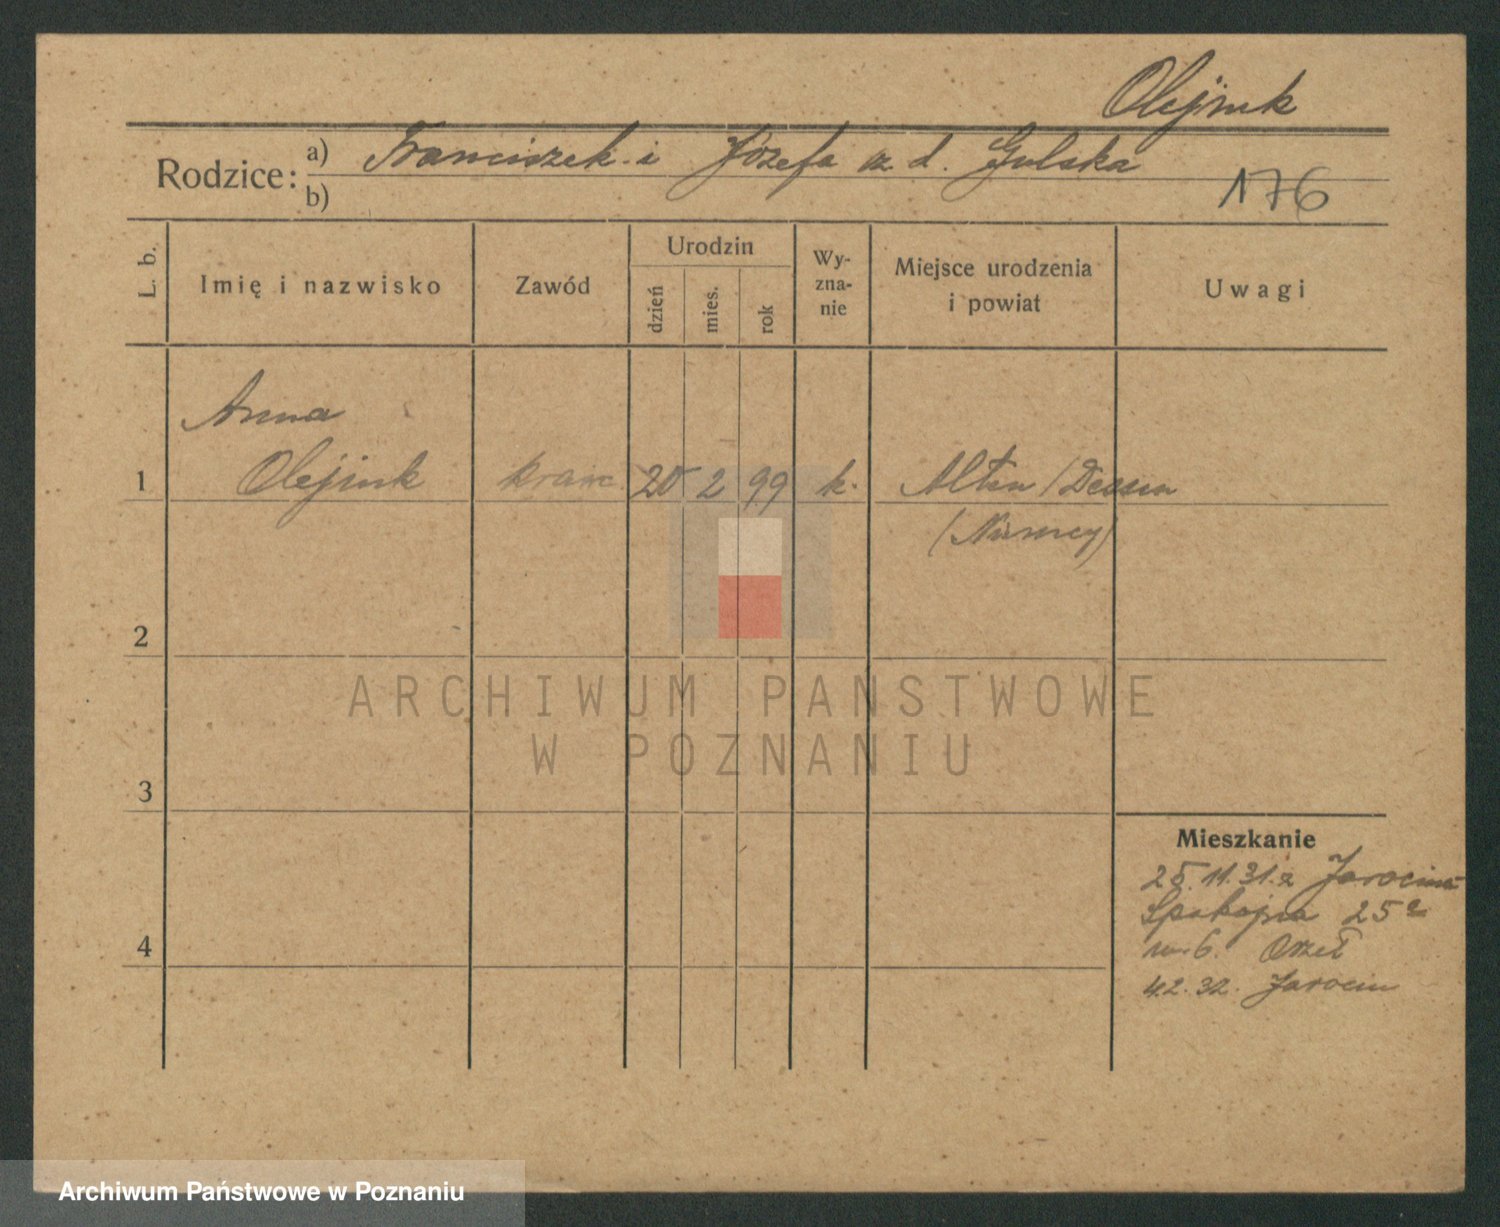 Olejnik
Rodzice: a) Franciszek i Józefa z d. Gulska
b)
176
L. b.
Imię i nazwisko
Zawód
Urodzin
dzień
mies.
rok
Wy-
zna-
nie
Miejsce urodzenia
i powiat
Uwagi
Anna
1 Olejnik krawc. 20 2 99 k. Alten / Dessen
(Niemcy)
2
3
4
Mieszkanie
25.11.31. z Jarocina
Spokojna 25a
m. 6.
4.2.32. Jarocin
ARCHIWUM PAŃSTWOWE
W POZNANIU
Archiwum Państwowe w Poznaniu